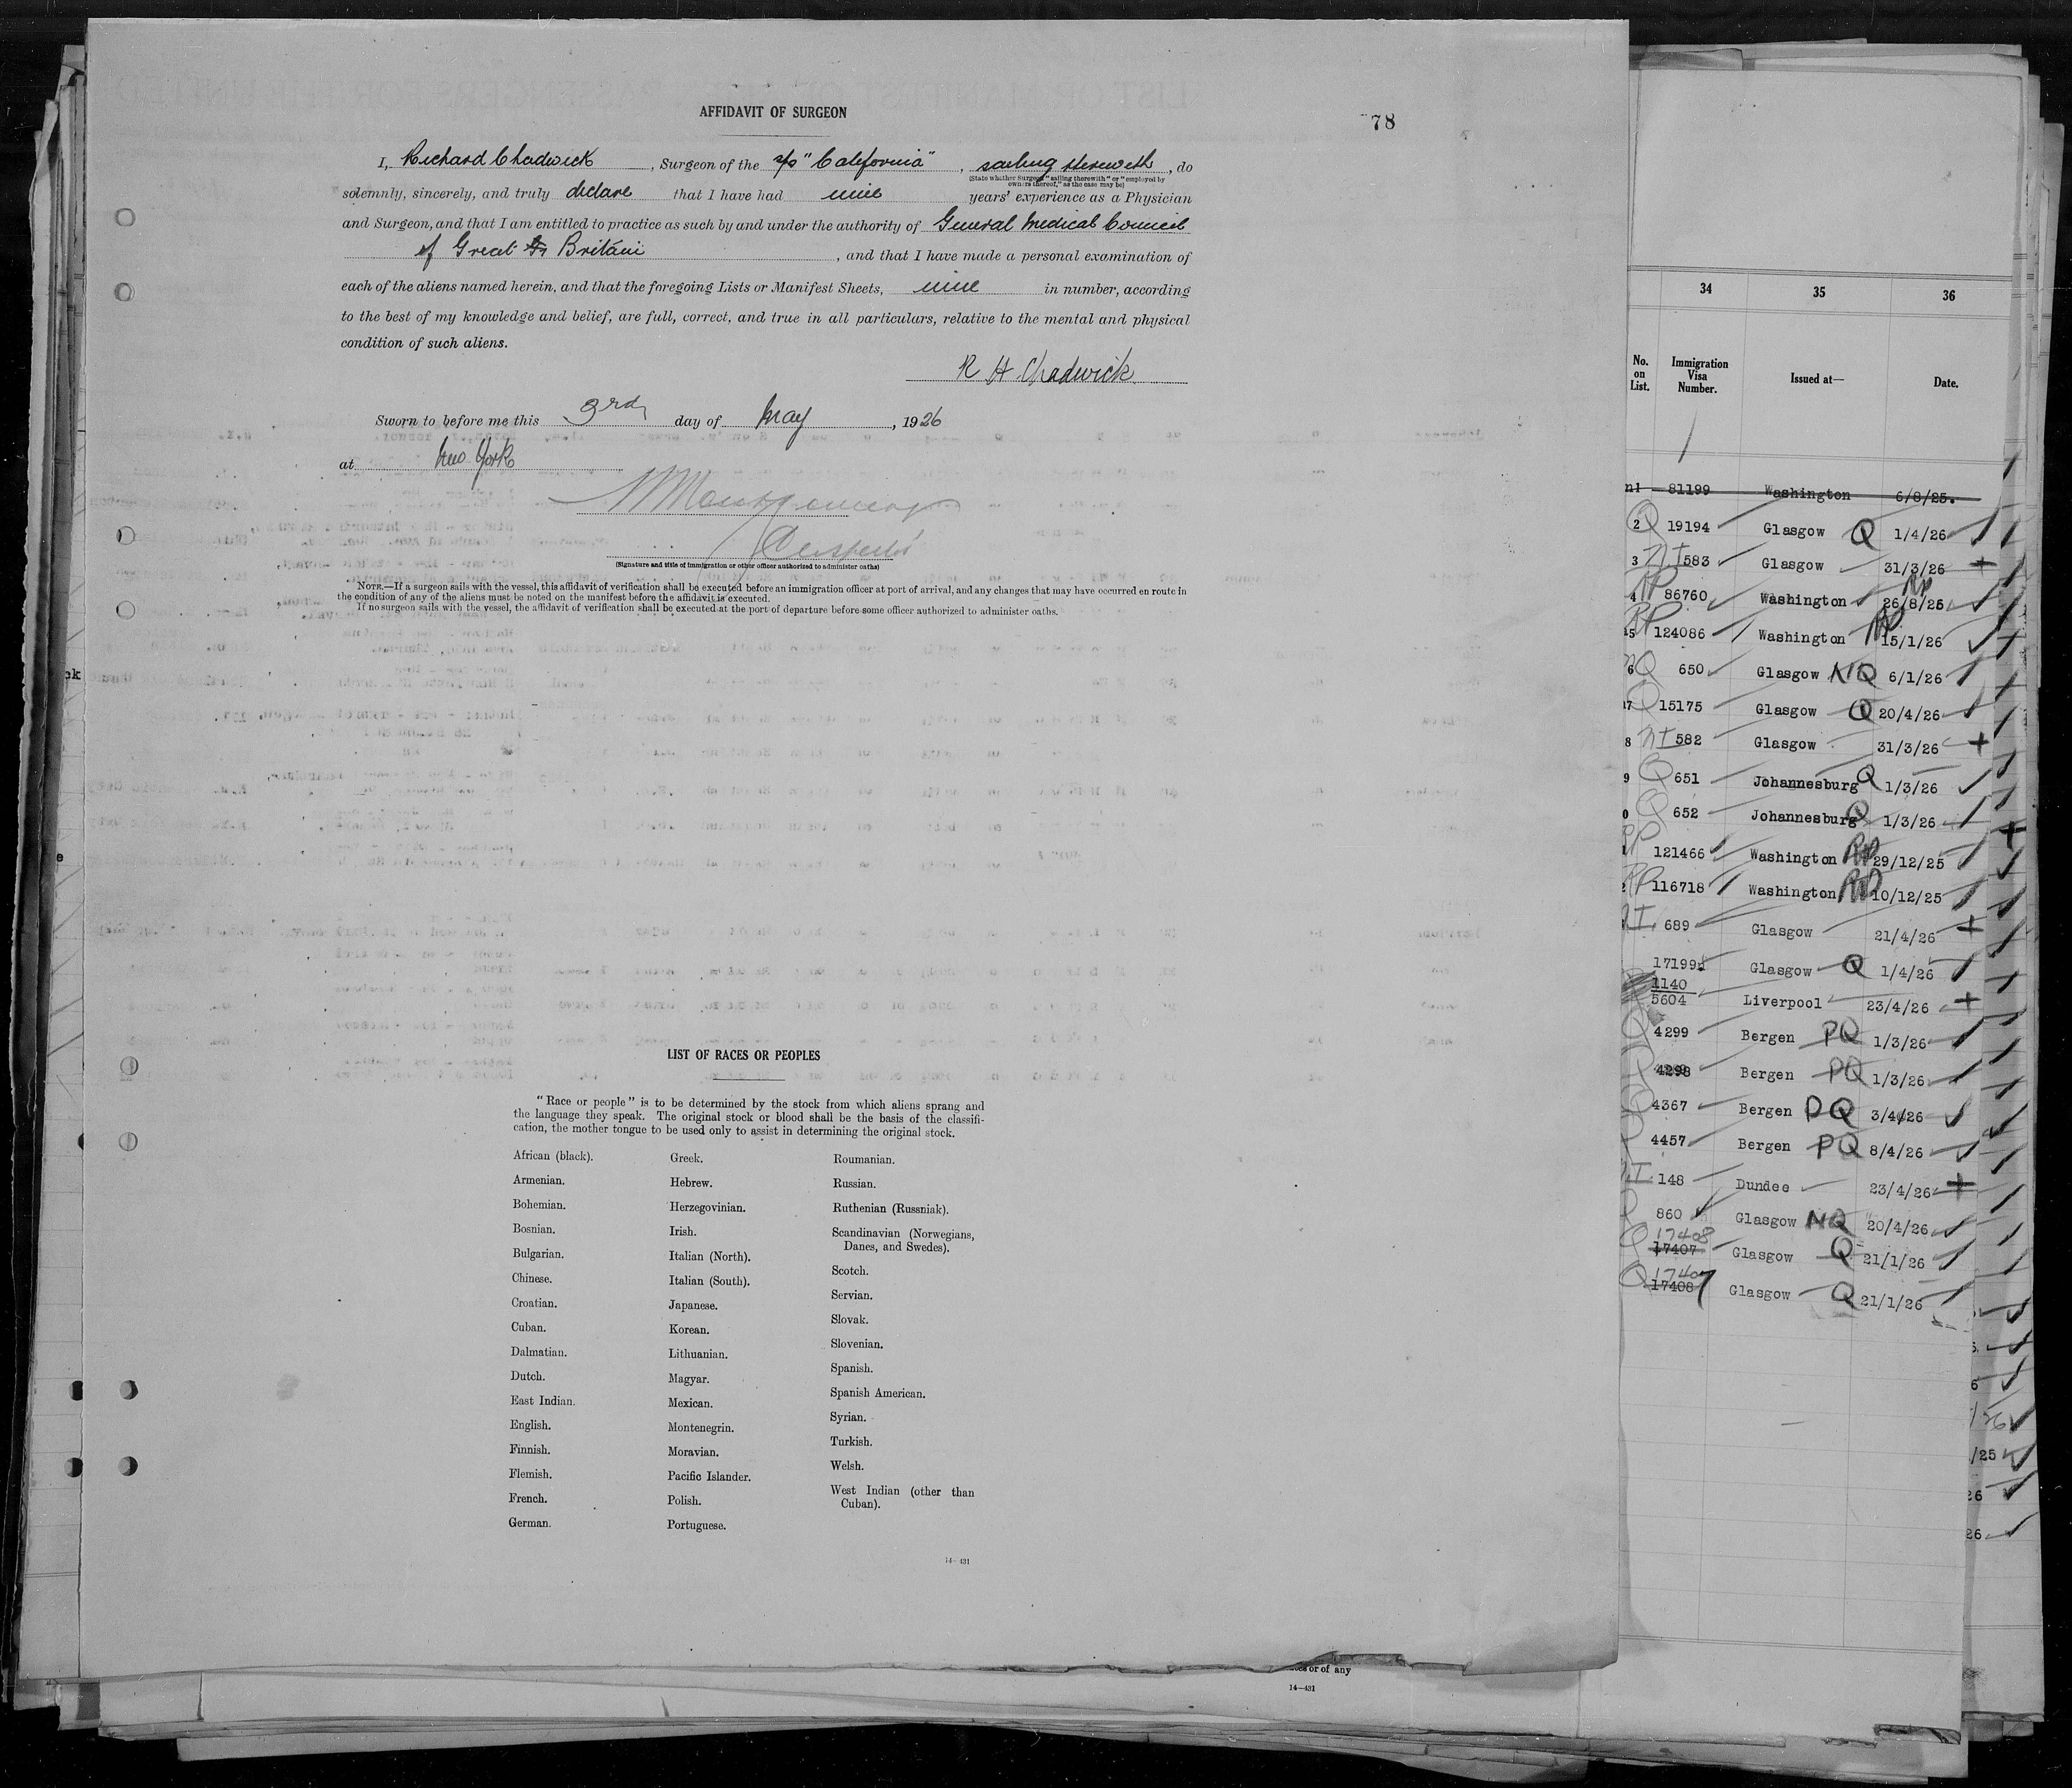 AFFIDAVIT OF SURGEON
78
I, Richard Chadwick, Surgeon of the s/s "California", sailing therewith, do
(State whether Surgeon "sailing therewith" or "employed by
owners thereof," as the case may be)
solemnly, sincerely, and truly declare that I have had nine years' experience as a Physician
and Surgeon, and that I am entitled to practice as such by and under the authority of General Medical Council
of Great Britain, and that I have made a personal examination of
each of the aliens named herein, and that the foregoing Lists or Manifest Sheets, nine in number, according
to the best of my knowledge and belief, are full, correct, and true in all particulars, relative to the mental and physical
condition of such aliens.
R H Chadwick
Sworn to before me this 3rd day of May, 1926
at New York
Montgomery
(Signature and title of immigration or other officer authorized to administer oaths)
NOTE.—If a surgeon sails with the vessel, this affidavit of verification shall be executed before an immigration officer at port of arrival, and any changes that may have occurred en route in
the condition of any of the aliens must be noted on the manifest before the affidavit is executed.
If no surgeon sails with the vessel, the affidavit of verification shall be executed at the port of departure before some officer authorized to administer oaths.
LIST OF RACES OR PEOPLES
"Race or people" is to be determined by the stock from which aliens sprang and
the language they speak. The original stock or blood shall be the basis of the classifi-
cation, the mother tongue to be used only to assist in determining the original stock.
African (black).
Armenian.
Bohemian.
Bosnian.
Bulgarian.
Chinese.
Croatian.
Cuban.
Dalmatian.
Dutch.
East Indian.
English.
Finnish.
Flemish.
French.
German.
Greek.
Hebrew.
Herzegovinian.
Irish.
Italian (North).
Italian (South).
Japanese.
Korean.
Lithuanian.
Magyar.
Mexican.
Montenegrin.
Moravian.
Pacific Islander.
Polish.
Portuguese.
Roumanian.
Russian.
Ruthenian (Russniak).
Scandinavian (Norwegians,
Danes, and Swedes).
Scotch.
Servian.
Slovak.
Slovenian.
Spanish.
Spanish American.
Syrian.
Turkish.
Welsh.
West Indian (other than
Cuban).
14—431
34 35 36
No.
on
List.
Immigration
Visa
Number.
Issued at—
Date.
81199 Washington 6/8/25.
2 Q 19194 Glasgow Q 1/4/26
3 NI 583 Glasgow 31/3/26
4 RP 86760 Washington RP 26/8/25
5 RP 124086 Washington RP 15/1/26
6 NQ 650 Glasgow NQ 6/1/26
7 Q 15175 Glasgow Q 20/4/26
8 NI 582 Glasgow 31/3/26
9 Q 651 Johannesburg Q 1/3/26
0 Q 652 Johannesburg Q 1/3/26
RP 121466 Washington RP 29/12/25
2 RP 116718 Washington RP 10/12/25
NI 689 Glasgow 21/4/26
17199 Glasgow Q 1/4/26
1140
5604 Liverpool 23/4/26
Q 4299 Bergen PQ 1/3/26
4298 Bergen PQ 1/3/26
Q 4367 Bergen PQ 3/4/26
4457 Bergen PQ 8/4/26
NI 148 Dundee 23/4/26
860 Glasgow NQ 20/4/26
Q 17408
17407 Glasgow Q 21/1/26
Q 17407
17408 Glasgow Q 21/1/26
or of any
14—431